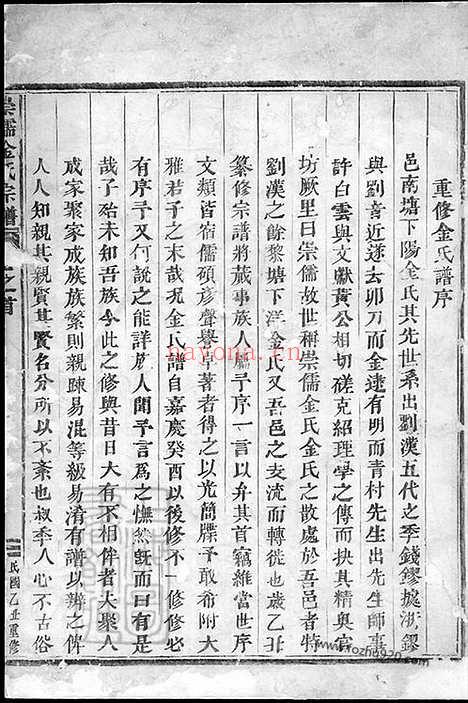 重修金氏譜序
邑南塘下陽金氏其先世系出劉漢五代之季錢鏐據浙鏐
與劉音近遂去卯刀而金逮有明而青村先生出先生師事
許白雲與文獻黃公相切磋克紹理學之傳而抉其精與官
坊厥里曰崇儒故世稱崇儒金氏金氏之散處於吾邑者特
劉漢之餘黎塘下洋金氏又吾邑之支流而轉徙也歲乙丑
纂修宗譜將蕆事族人屬予序一言以弁其首竊維當世序
文類皆宿儒碩彥聲譽卓著者得之以光簡牒予敢希附大
雅君子之末哉況金氏譜自嘉慶癸酉以後修不一修修必
有序予又何說之能詳族人聞予言為之憮然既而曰有是
哉子殆未知吾族今此之修與昔日大有不相侔者大聚人
成家聚家成族族繁則親疎易混等級易淆有譜以辨之俾
人人知親其親賢其賢名分所以不紊也叔季人心不古俗
崇儒金氏宗譜
卷之首
民國乙丑重修
bayona.cn
www.rozhu920